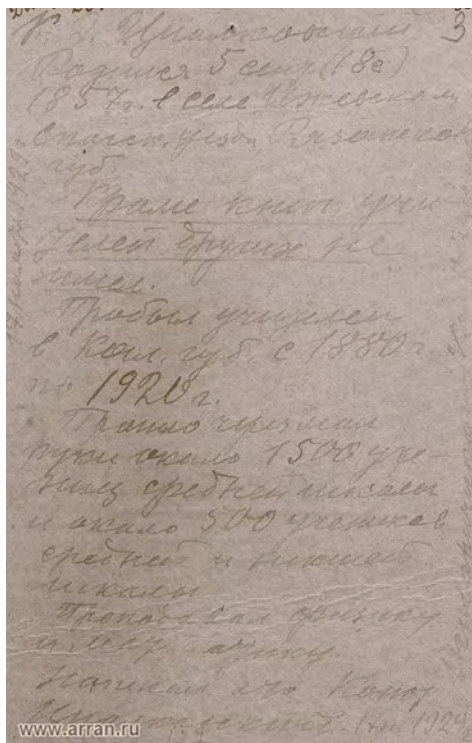 3
Циолковский
Родился 5 сент. (18е)
1857 г. в селе Ижевском
Спасск. уезда Рязанской
губ.
Кроме книг, учи-
телей других не
имел.
Пробыл учителем
в Кал. губ. с 1880 г.
по 1920 г.
Прошло через мои
руки около 1500 уче-
ниц средней школы
и около 500 учеников
средней и низшей
школы
Преподавал физику
и математику.
Конст
Циолковский. 1924
www.arran.ru